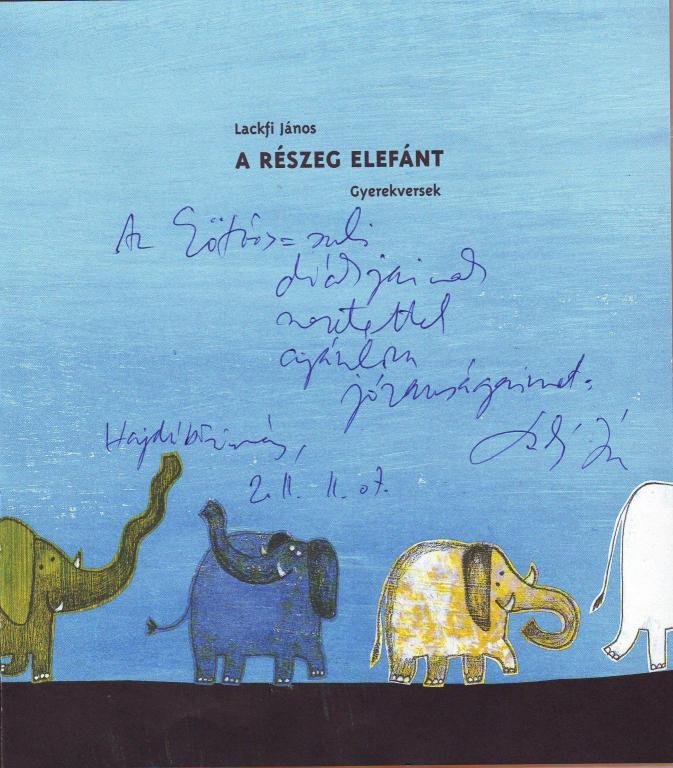 Lackfi János
A RÉSZEG ELEFÁNT
Gyerekversek
Az Eötvös-suli
diákjainak
szeretettel
ajánlom
józanságaimat:
Hajdúböszörmény,
2011. 11. 07.